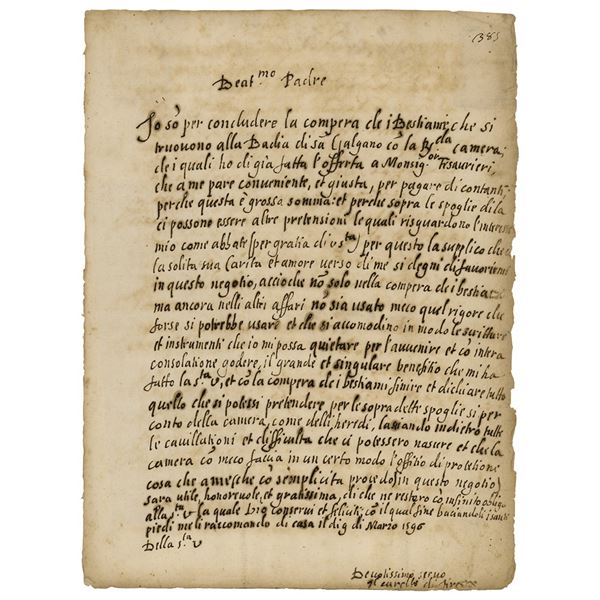 385
Beat.mo Padre
Io sò per concludere la compera dei Bestiami, che si
truovono alla Badia di sã Galgano cò la R.da camera;
de i quali ho di già fatta l'offerta a Monsig.or Tesaurieri,
che a me pare conveniente, et giusta, per pagare di contanti
perche questa è grossa somma: et perche sopra le spoglie di la
ci possono essere altre pretensioni le quali risguardono l'interesse
mio come abbate (per gratia di V S.ta) per questo la supplico che
la solita sua Carita et amore verso di me si degni di favorirmi
in questo negotio, accioche nò solo nella compera dei bestiami
ma ancora nelli altri affari nò sia usato meco quel rigore che
forse si potrebbe usare et che si accomodino in modo le scritture
et instrumenti che io mi possa quietare per l'avvenire et cò intera
consolatione godere, il grande et singulare benefitio che mi ha
fatto la S.ta V, et cò la compera dei bestiami, finire et dichiare tutto
quello che si potessi pretendere per le sopradette spoglie si per
conto della camera, come delli heredi, lasciando indietro tutte
le cavillationi et difficulta che ci potessero nascere et che la
camera cò meco faccia in un certo modo l'offitio di protetione
cosa che a me (che cò semplicita procedo in questo negotio)
sara utile, honorevole et gratissima, di che ne restero cò infinito obligo
alla S.ta V la quale Dio conservi et feliciti cò il qual fine baciandoli i santi
piedi me li raccomando di casa il dì 9 di Marzo 1596
Della S.ta V
Devotissimo servo